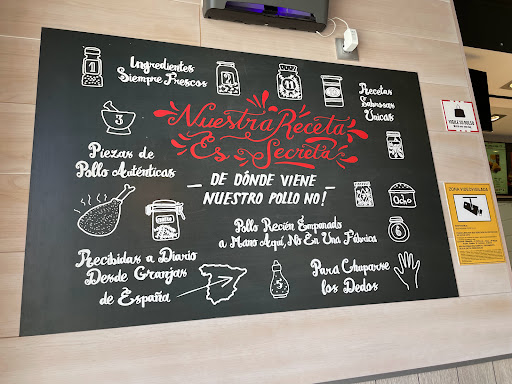 1
Ingredientes
Siempre Frescos
2
11
Recetas
Sabrosas
Únicas
3
Nuestra Receta
Es Secreta
DE DÓNDE VIENE
NUESTRO POLLO NO!
Piezas de
Pollo Auténticas
Ocho
6
Pollo Recién Empanado
a Mano Aquí, No En Una Fábrica
Recibidas a Diario
Desde Granjas
de España
5
Para Chuparse
los Dedos
ZONA VIDEOVIGILADA